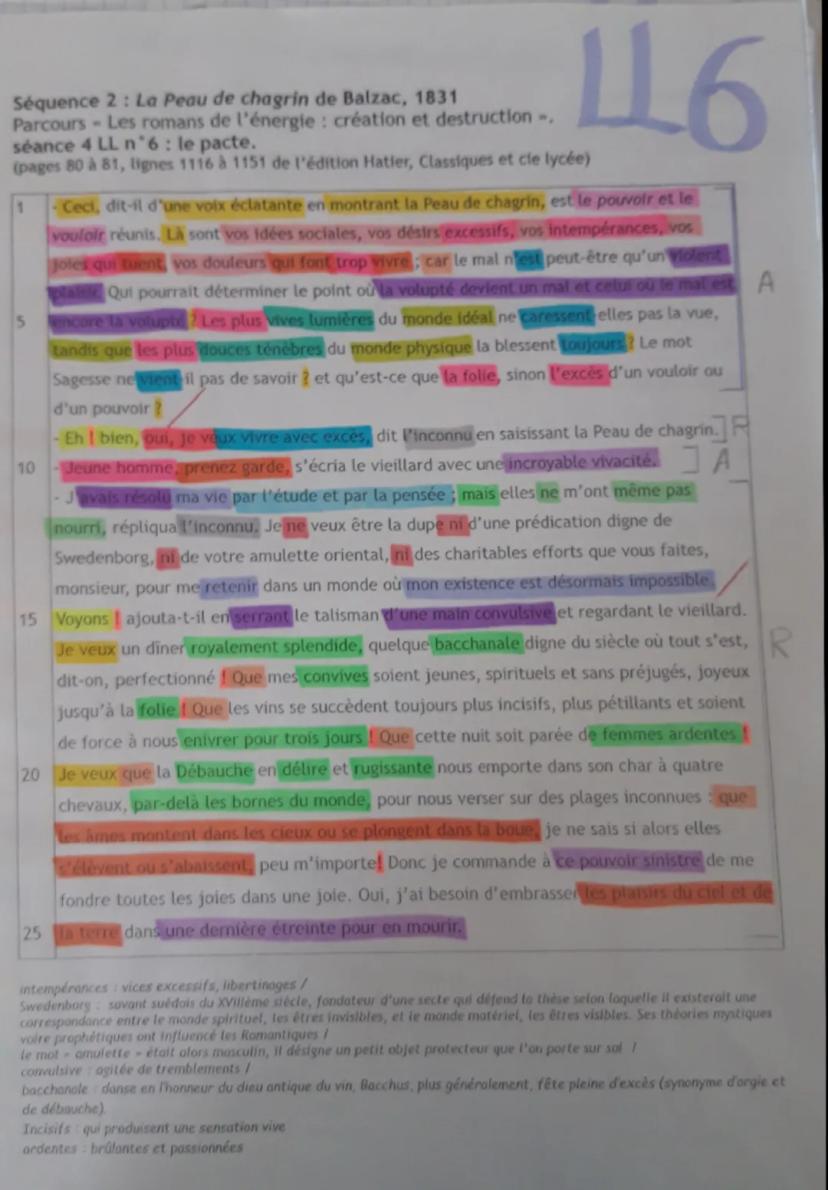 LL6
Séquence 2 : La Peau de chagrin de Balzac, 1831
Parcours « Les romans de l'énergie : création et destruction ».
séance 4 LL n°6 : le pacte.
(pages 80 à 81, lignes 1116 à 1151 de l'édition Hatier, Classiques et cie lycée)
1 - Ceci, dit-il d'une voix éclatante en montrant la Peau de chagrin, est le pouvoir et le
vouloir réunis. Là sont vos idées sociales, vos désirs excessifs, vos intempérances, vos
joies qui tuent, vos douleurs qui font trop vivre ; car le mal n'est peut-être qu'un violent
plaisir. Qui pourrait déterminer le point où la volupté devient un mal et celui où le mal est
A
5 encore la volupté ? Les plus vives lumières du monde idéal ne caressent-elles pas la vue,
tandis que les plus douces ténèbres du monde physique la blessent toujours ? Le mot
Sagesse ne vient-il pas de savoir ? et qu'est-ce que la folie, sinon l'excès d'un vouloir ou
d'un pouvoir ?
- Eh ! bien, oui, je veux vivre avec excès, dit l'inconnu en saisissant la Peau de chagrin. R
10 - Jeune homme, prenez garde, s'écria le vieillard avec une incroyable vivacité. A
- J'avais résolu ma vie par l'étude et par la pensée ; mais elles ne m'ont même pas
nourri, répliqua l'inconnu. Je ne veux être la dupe ni d'une prédication digne de
Swedenborg, ni de votre amulette oriental, ni des charitables efforts que vous faites,
monsieur, pour me retenir dans un monde où mon existence est désormais impossible.
15 Voyons ! ajouta-t-il en serrant le talisman d'une main convulsive et regardant le vieillard.
Je veux un dîner royalement splendide, quelque bacchanale digne du siècle où tout s'est,
R
dit-on, perfectionné ! Que mes convives soient jeunes, spirituels et sans préjugés, joyeux
jusqu'à la folie ! Que les vins se succèdent toujours plus incisifs, plus pétillants et soient
de force à nous enivrer pour trois jours ! Que cette nuit soit parée de femmes ardentes !
20 Je veux que la Débauche en délire et rugissante nous emporte dans son char à quatre
chevaux, par-delà les bornes du monde, pour nous verser sur des plages inconnues : que
les âmes montent dans les cieux ou se plongent dans la boue, je ne sais si alors elles
s'élèvent ou s'abaissent, peu m'importe ! Donc je commande à ce pouvoir sinistre de me
fondre toutes les joies dans une joie. Oui, j'ai besoin d'embrasser les plaisirs du ciel et de
25 la terre dans une dernière étreinte pour en mourir.
intempérances : vices excessifs, libertinages /
Swedenborg : savant suédois du XVIIIème siècle, fondateur d'une secte qui défend la thèse selon laquelle il existerait une
correspondance entre le monde spirituel, les êtres invisibles, et le monde matériel, les êtres visibles. Ses théories mystiques
voire prophétiques ont influencé les Romantiques /
le mot « amulette » était alors masculin, il désigne un petit objet protecteur que l'on porte sur soi /
convulsive : agitée de tremblements /
bacchanale : danse en l'honneur du dieu antique du vin, Bacchus, plus généralement, fête pleine d'excès (synonyme d'orgie et
de débauche).
Incisifs : qui produisent une sensation vive
ardentes : brûlantes et passionnées